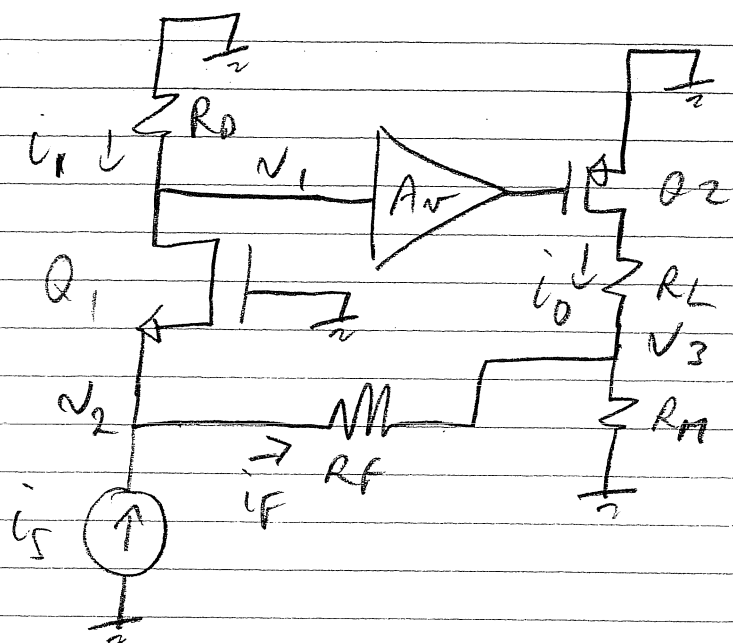 RD
i1
v1
Av
Q2
Q1
iD
RL
V3
v2
RM
iF
RF
iS